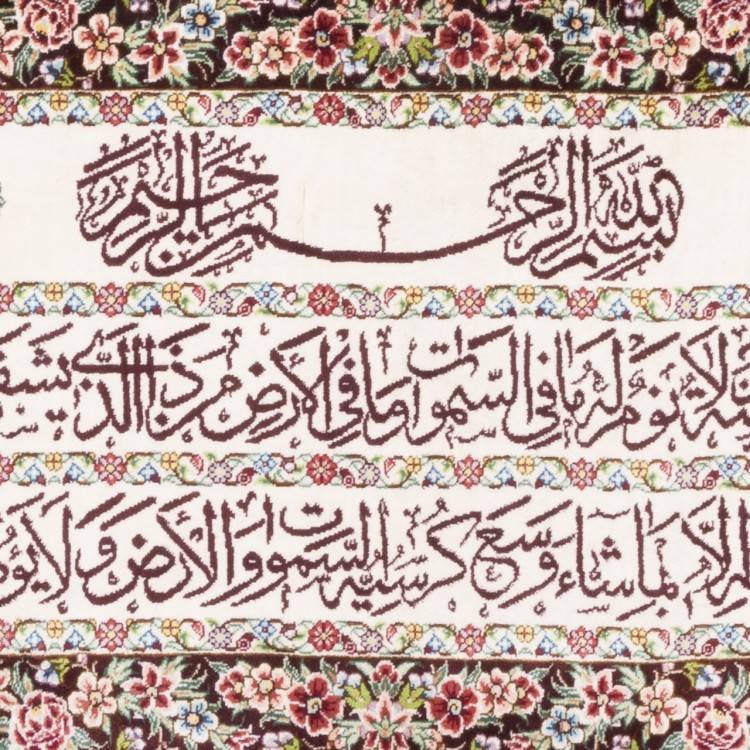 بسم الله الرحمن الرحيم
ولا نوم له ما في السموات وما في الأرض من ذا الذي يشف
إلا بما شاء وسع كرسيه السموات والأرض ولا يؤد